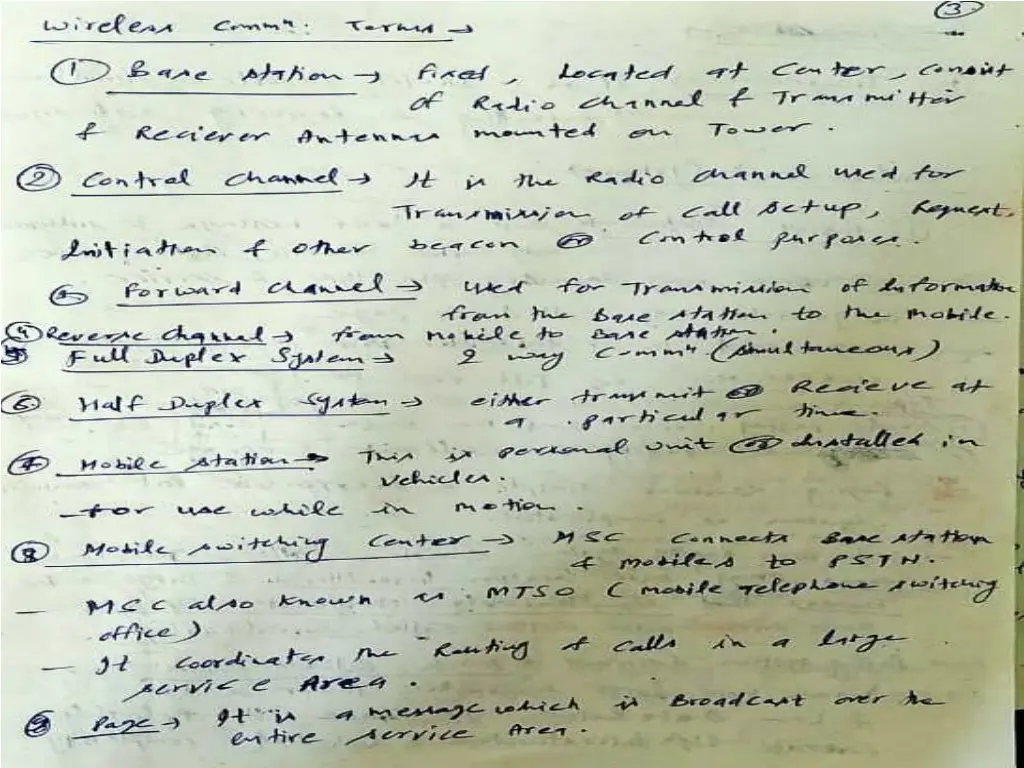 ③
Wireless Commⁿ: Terms →
① Base Station → fixed, Located at Center, Consist
of Radio Channel & Transmitter
& Reciever Antennas mounted on Tower.
② Control Channel → It is the Radio channel used for
Transmission of Call Setup, Request,
Initiation & other beacon or Control purposes.
③ Forward Channel → Used for Transmission of Information
from the Base Station to the Mobile.
④ Reverse Channel → from mobile to Base Station.
5 Full Duplex System → 2 way Commⁿ (Simultaneous)
⑥ Half Duplex System → either transmit or Recieve at
a particular time.
⑦ Mobile Station → This is personal unit or Installed in
Vehicles.
- for use while in motion.
⑧ Mobile Switching Center → MSC Connects Base Station
& mobiles to PSTN.
- MSC also known as MTSO (Mobile Telephone switching
office)
- It Coordinates the Routing of Calls in a large
service Area.
⑨ Page → It is a message which is Broadcast over the
entire service Area.